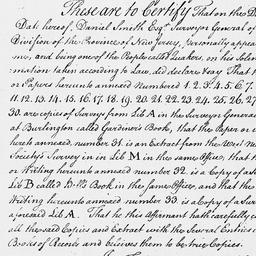 These are to Certify That on the D
Date hereof, Daniel Smith Esqr. Surveyor General of
Division of the Province of New Jersey, Personally appea
me, and being one of the People called Quakers, on his Solem
mation taken according to Law, did declare & say That t
or Papers hereunto annexed Numbered 1. 2. 3. 4. 5. 6. 7.
11. 12. 13. 14. 15. 16. 17. 18. 19. 20. 21. 22. 23. 24. 25. 26. 27
30. are copies of Survey from Lib A in the Surveyors Genera
at Burlington called Gardiners Book, that the Paper or
hereto annexed, number 31. is an Extract from the West
Society's Survey in in Lib M in the same Office, that t
or Writing hereunto annexed number 32. is a Copy of a
Lib B called Book in the same Office, and that the
Writing hereunto annexed number 33. is a Copy of a Sur
aforesaid Lib A. That he this Affirmant hath carefully c
all the said Copies and Extract with the Several Entries
Books of Records and believes them to be true Copies.